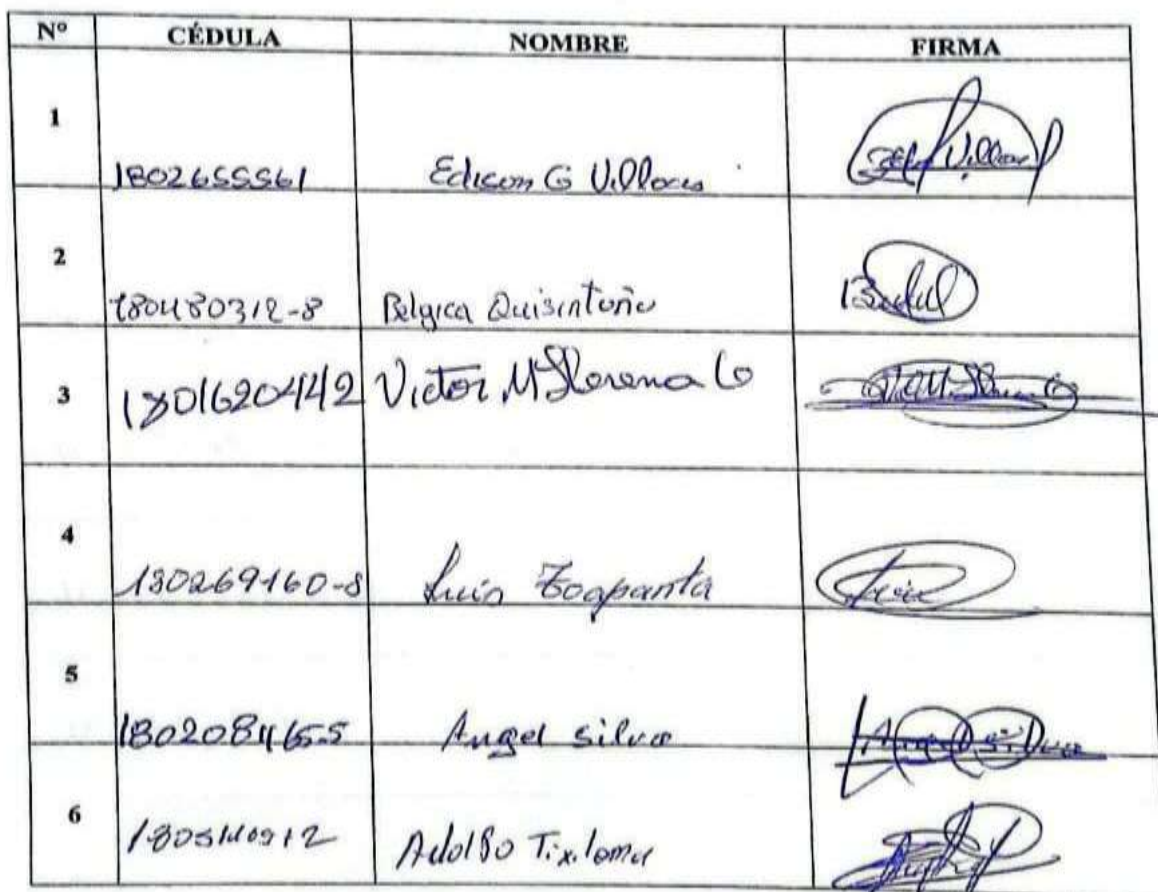 N° CÉDULA NOMBRE FIRMA
1 1802655561 Edison G Villacis
2 180480312-8 Belgica Quisintuña
3 1801620442 Victor M Llerena Co
4 180269160-8 Luis Toapanta
5 Angel Silva Angel Silva
6 Adolfo Tixilema